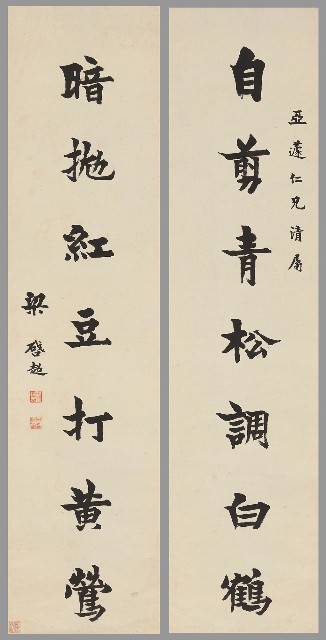 亞蘧仁兄清屬
自剪青松調白鶴
暗拋紅豆打黃鶯
梁啓超